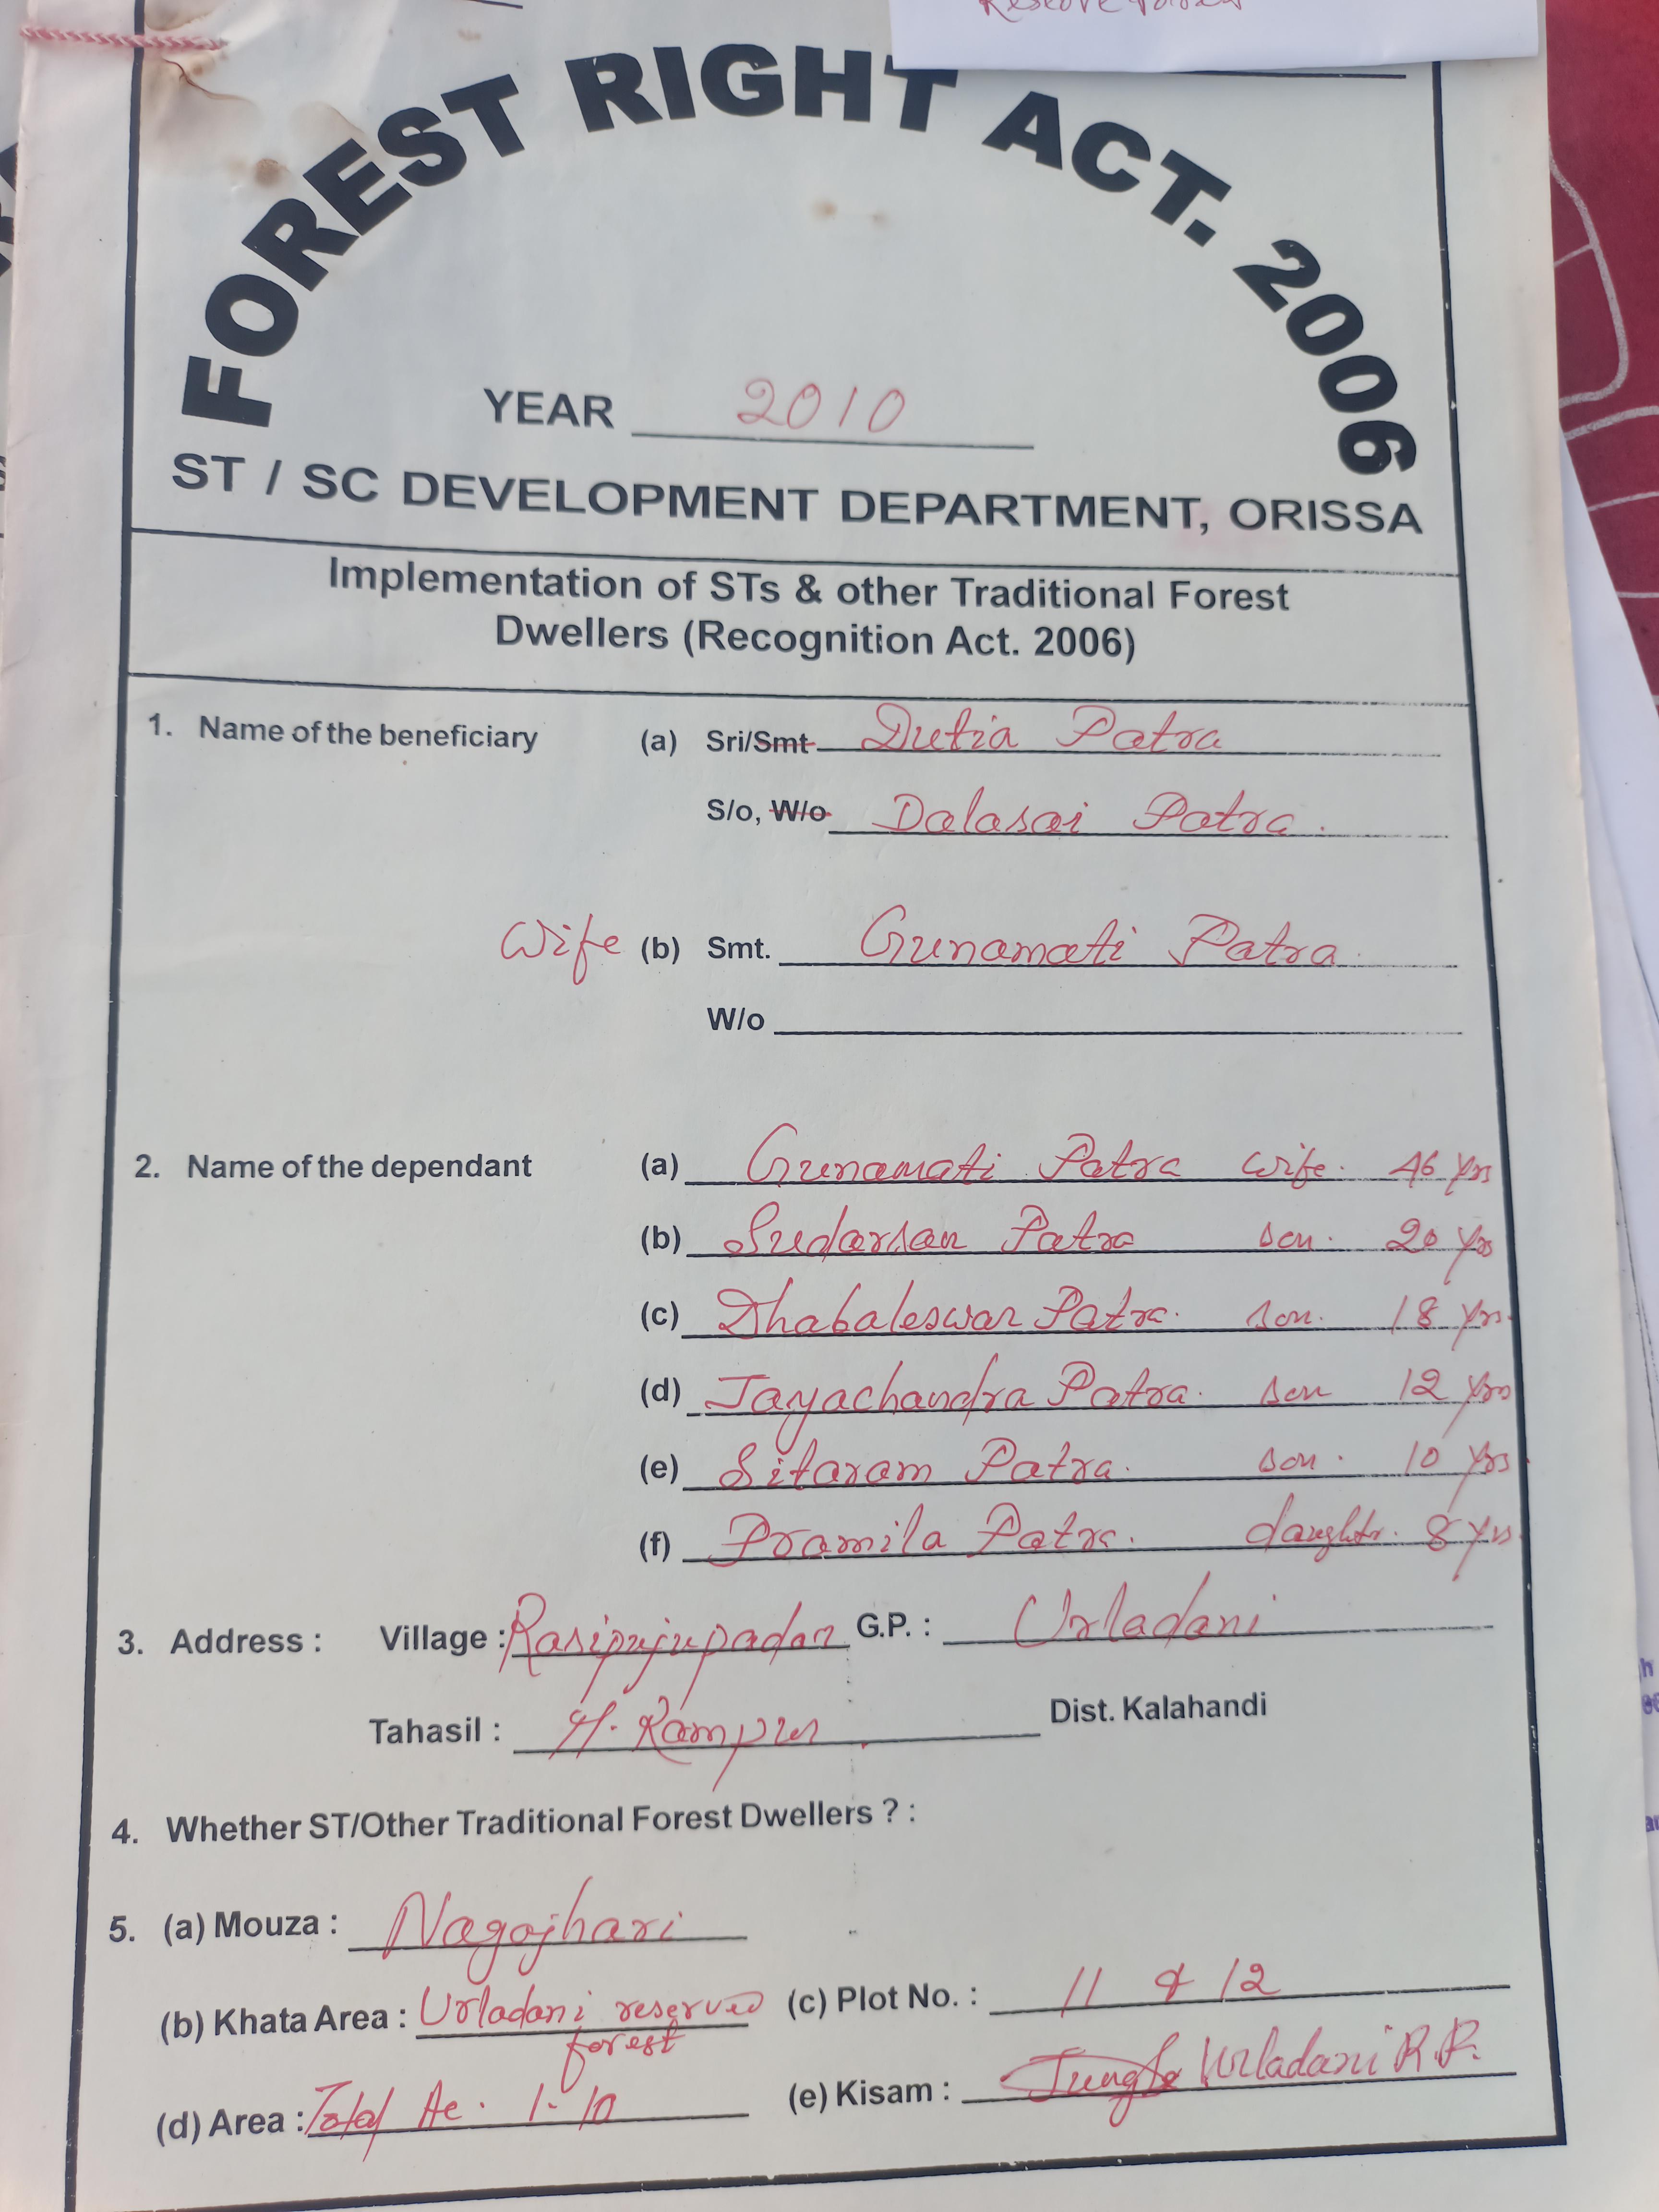 FOREST RIGHT ACT. 2006
YEAR 2010
ST / SC DEVELOPMENT DEPARTMENT, ORISSA
Implementation of STs & other Traditional Forest
Dwellers (Recognition Act. 2006)
1. Name of the beneficiary (a) Sri/Smt Dutia Patra
S/o, W/o Dalasai Patra.
Wife (b) Smt. Gunamati Patra
W/o
2. Name of the dependant (a) Gunamati Patra wife. 46 yrs
(b) Sudarsan Patra son. 20 yrs
(c) Dhabaleswar Patra. son. 18 yrs.
(d) Jayachandra Patra. son 12 yrs
(e) Sitaram Patra. son. 10 yrs
(f) Pramila Patra. daughtr. 8 yrs
3. Address : Village : Rasipujupadar G.P. : Urladani
Tahasil : Rampur Dist. Kalahandi
4. Whether ST/Other Traditional Forest Dwellers ? :
5. (a) Mouza : Nagojhari
(b) Khata Area : Urladani reserved forest (c) Plot No. : 11 & 12
(d) Area : Total Ac. 1.10 (e) Kisam : Jungle Urladani R.F.